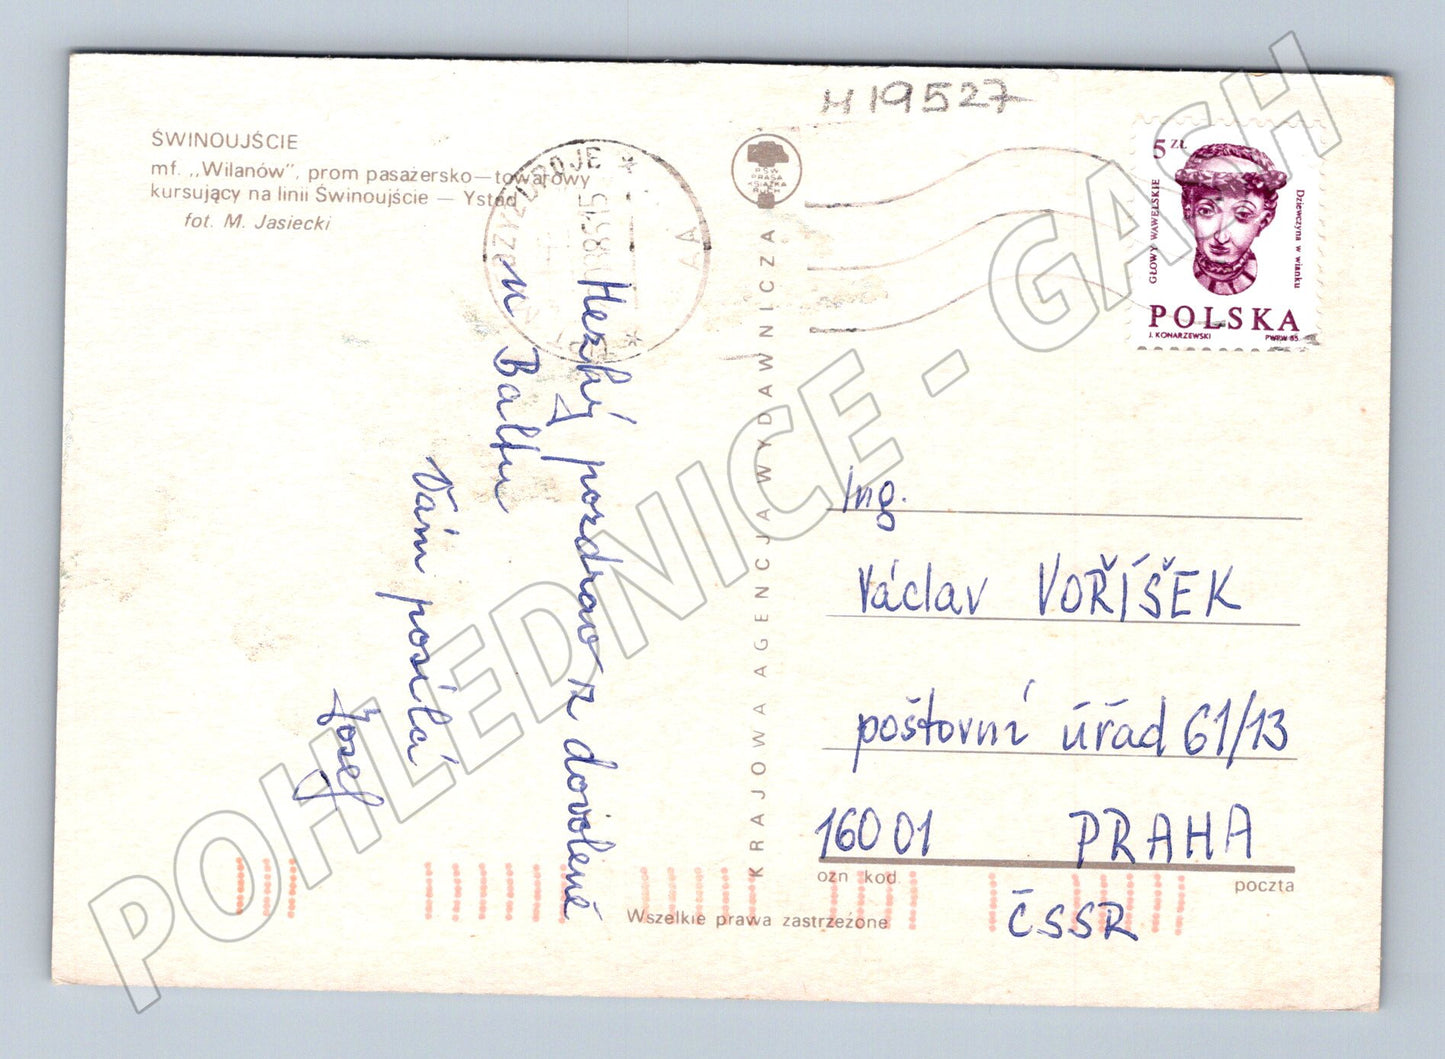 H 19527
ŚWINOUJŚCIE
mf. „Wilanów", prom pasażersko—towarowy
kursujący na linii Świnoujście — Ystad
fot. M. Jasiecki
5 ZŁ
GŁOWY WAWELSKIE
Dziewczyna w wianku
POLSKA
J. KONARZEWSKI
PWPW 85
AA
PSW
PRASA
KSIĄŻKA
RUCH
KRAJOWA AGENCJA WYDAWNICZA
Hezký pozdrav z dovolené
u Baltu
Vám posílá
Josef
Ing.
Václav VOŘÍŠEK
poštovní úřad 61/13
160 01 PRAHA
ozn kod. poczta
ČSSR
Wszelkie prawa zastrzeżone
POHLEDNICE - GASH